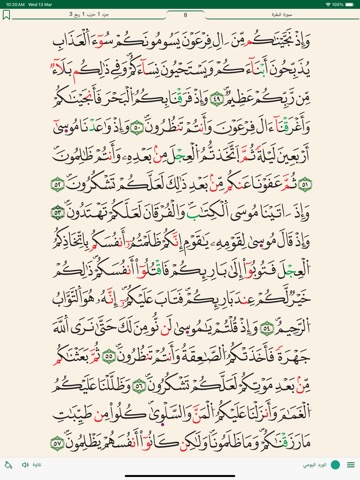 10:20 AM Wed 13 Mar 100%
جزء 1 حزب 1 ربع 3 8 سورة البقرة
وَإِذْ نَجَّيْنَاكُم مِّنْ ءَالِ فِرْعَوْنَ يَسُومُونَكُمْ سُوٓءَ ٱلْعَذَابِ
يُذَبِّحُونَ أَبْنَآءَكُمْ وَيَسْتَحْيُونَ نِسَآءَكُمْ وَفِي ذَٰلِكُم بَلَآءٌ
مِّن رَّبِّكُمْ عَظِيمٌ ٤٩ وَإِذْ فَرَقْنَا بِكُمُ ٱلْبَحْرَ فَأَنجَيْنَاكُمْ
وَأَغْرَقْنَآ ءَالَ فِرْعَوْنَ وَأَنتُمْ تَنظُرُونَ ٥٠ وَإِذْ وَٰعَدْنَا مُوسَىٰٓ
أَرْبَعِينَ لَيْلَةً ثُمَّ ٱتَّخَذتُّمُ ٱلْعِجْلَ مِنۢ بَعْدِهِۦ وَأَنتُمْ ظَٰلِمُونَ
٥١ ثُمَّ عَفَوْنَا عَنكُم مِّنۢ بَعْدِ ذَٰلِكَ لَعَلَّكُمْ تَشْكُرُونَ ٥٢
وَإِذْ ءَاتَيْنَا مُوسَى ٱلْكِتَٰبَ وَٱلْفُرْقَانَ لَعَلَّكُمْ تَهْتَدُونَ ٥٣
وَإِذْ قَالَ مُوسَىٰ لِقَوْمِهِۦ يَٰقَوْمِ إِنَّكُمْ ظَلَمْتُمْ أَنفُسَكُم بِٱتِّخَاذِكُمُ
ٱلْعِجْلَ فَتُوبُوٓا۟ إِلَىٰ بَارِئِكُمْ فَٱقْتُلُوٓا۟ أَنفُسَكُمْ ذَٰلِكُمْ
خَيْرٌ لَّكُمْ عِندَ بَارِئِكُمْ فَتَابَ عَلَيْكُمْ إِنَّهُۥ هُوَ ٱلتَّوَّابُ
ٱلرَّحِيمُ ٥٤ وَإِذْ قُلْتُمْ يَٰمُوسَىٰ لَن نُّؤْمِنَ لَكَ حَتَّىٰ نَرَى ٱللَّهَ
جَهْرَةً فَأَخَذَتْكُمُ ٱلصَّٰعِقَةُ وَأَنتُمْ تَنظُرُونَ ٥٥ ثُمَّ بَعَثْنَٰكُم
مِّنۢ بَعْدِ مَوْتِكُمْ لَعَلَّكُمْ تَشْكُرُونَ ٥٦ وَظَلَّلْنَا عَلَيْكُمُ
ٱلْغَمَامَ وَأَنزَلْنَا عَلَيْكُمُ ٱلْمَنَّ وَٱلسَّلْوَىٰ كُلُوا۟ مِن طَيِّبَٰتِ
مَا رَزَقْنَٰكُمْ وَمَا ظَلَمُونَا وَلَٰكِن كَانُوٓا۟ أَنفُسَهُمْ يَظْلِمُونَ ٥٧
تلاوة الورد اليومي